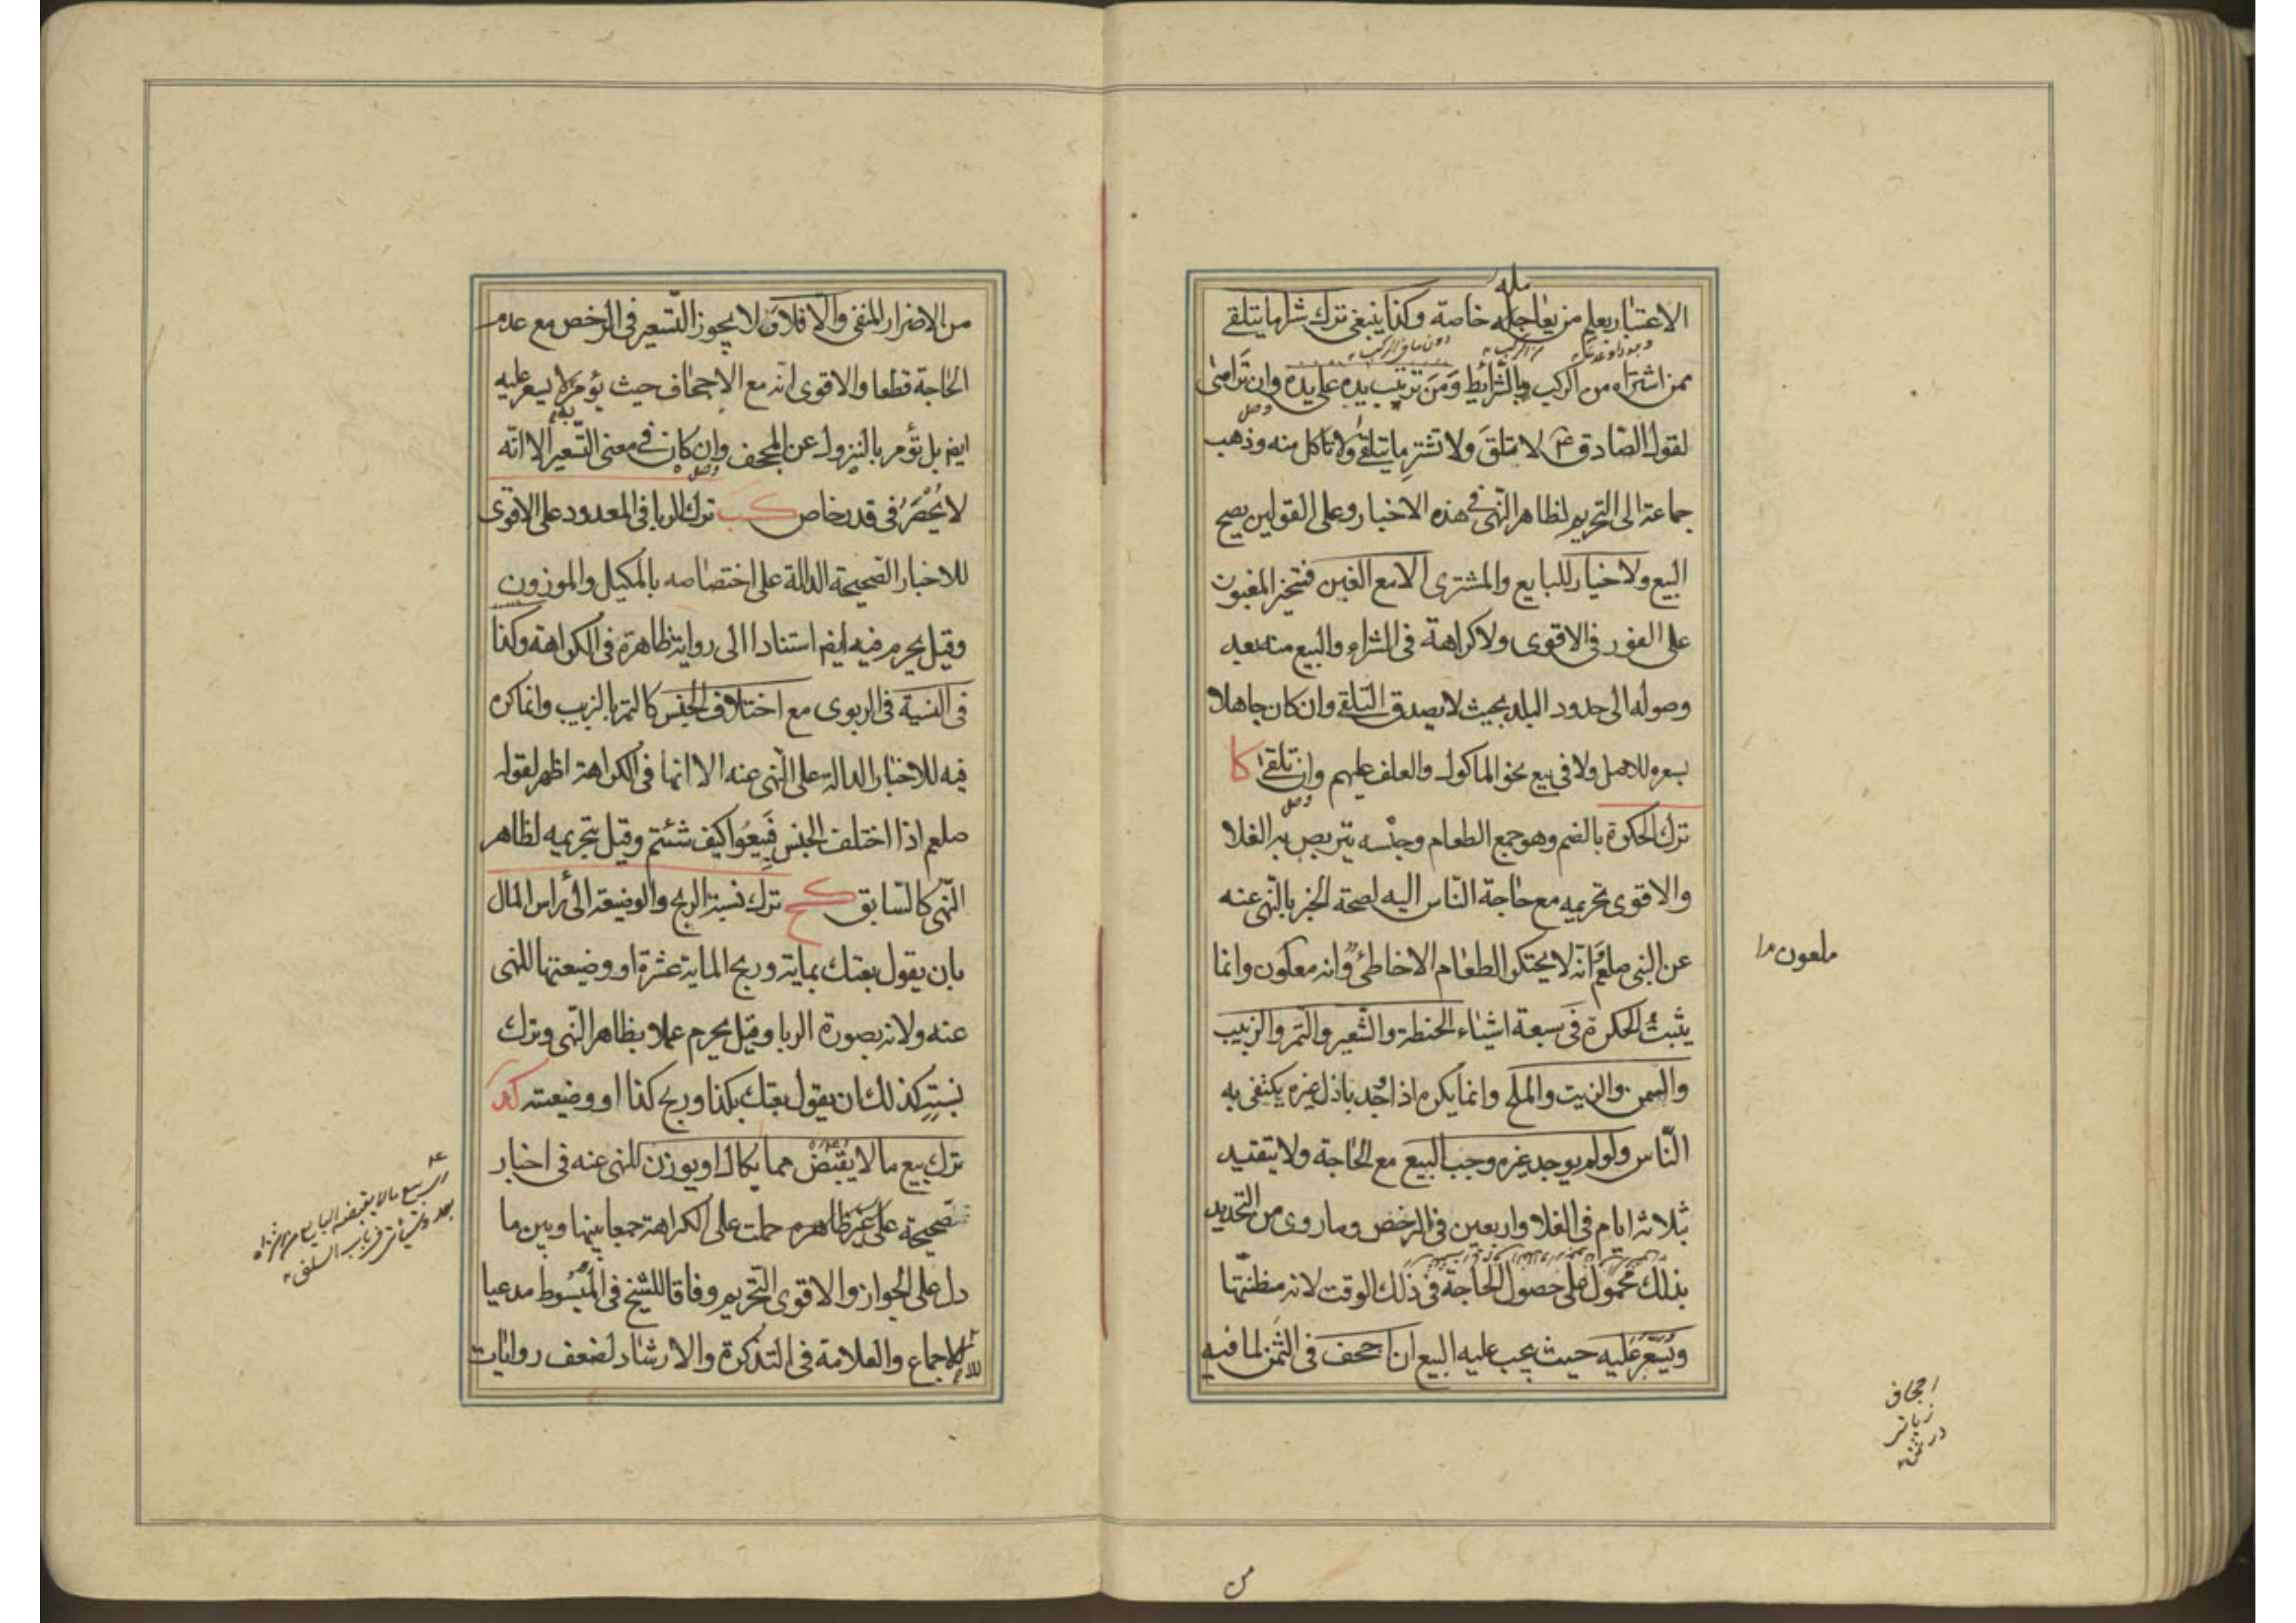 الاعتبار بعلم من يعامله خاصة وكذا ينبغي ترك شراء ما يتلقى
ممن اشتراه من الركب بالشرائط ومن ترتبت يده على يده وان ترامى
لقول الصادق ع لا تتلق ولا تشتر ما يتلقى ولا تاكل منه وذهب
جماعة الى التحريم لظاهر النهى في هذه الاخبار وعلى القولين يصح
البيع ولا خيار للبايع والمشترى الا مع الغبن فيتخير المغبون
على الفور في الاقوى ولا كراهة فى الشراء والبيع منه بعد
وصوله الى حدود البلد بحيث لا يصدق التلقي وان كان جاهلا
بسعره للاصل ولا في بيع نحو الماكول والعلف عليهم وان تلقى كا
ترك الحكرة بالضم وهو جمع الطعام وحبسه يتربص به الغلا
والاقوى تحريمه مع حاجة الناس اليه لصحة الخبر بالنهى عنه
عن النبى صلعم وانه لا يحتكر الطعام الا خاطئ وانه معلون وانما
ملعون
يثبت الحكرة في سبعة اشياء الحنطة والشعير والتمر والزبيب
والسمن والزيت والملح وانما يكره اذا وجد باذل غيره يكتفى به
الناس ولو لم يوجد غيره وجب البيع مع الحاجة ولا يتقيد
بثلاثة ايام فى الغلا واربعين فى الرخص وما روى من التحديد
بذلك محمول على حصول الحاجة فى ذلك الوقت لانه مظنتها
ويسعر عليه حيث يجب عليه البيع ان اجحف فى الثمن لما فيه
اجحاف
در ثمن
من
من الاضرار المنفى والا فلا ولا يجوز التسعير فى الرخص مع عدم
الحاجة قطعا والاقوى انه مع الاجحاف حيث يؤمر لا يسعر عليه
ايضا بل تؤمر بالنزول عن المجحف وان كان في معنى التسعير الا انه
لا يحصر فى قدر خاص كب ترك الربا فى المعدود على الاقوى
للاخبار الصحيحة الدالة على اختصاصه بالمكيل والموزون
وقيل يحرم فيه ايضا استنادا الى رواية ظاهرة فى الكراهة وكذا
فى النسية فى الربوى مع اختلاف الجنس كالتمر بالزبيب وانما كره
فيه للاخبار الدالة على النهى عنه الا انها فى الكراهة اظهر لقوله
صلعم اذا اختلف الجنس فبيعوا كيف شئتم وقيل بتحريمه لظاهر
النهى كالسابق كج ترك نسبة الربح والوضيعة الى راس المال
بان يقول بعتك بماية وربح الماية عشرة او وضيعتها للنهى
عنه ولانه بصورة الربا وقيل يحرم عملا بظاهر النهى وترك
نسبته كذلك ان يقول بعتك بكذا وربح كذا او وضيعته كد
ترك بيع ما لا يقبض مما يكال او يوزن للنهى عنه فى اخبار
صحيحة على غير ظاهره حملت على الكراهة جمعا بينها وبين ما
دل على الجواز والاقوى التحريم وفاقا للشيخ فى المبسوط مدعيا
للاجماع والعلامة فى التذكرة والارشاد لضعف روايات